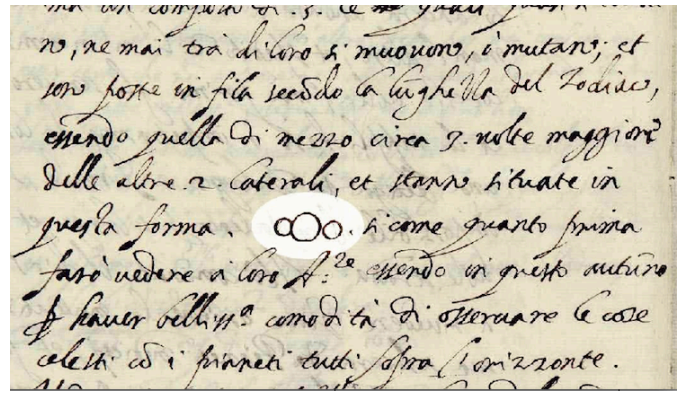 ma un composto di .3. le quali quasi
no, ne mai tra di loro si muovono, o mutano; et
son poste in fila secōdo la lūghezza del zodiaco,
essendo quella di mezzo circa 3. volte maggiore
delle altre .2. laterali, et stanno situate in
questa forma . oOo . si come quanto prima
farò vedere a loro A.ze essendo in questo autūno
p haver belliss.a comodità di osservare le cose
celesti cō i pianeti tutti sopra l'orizzonte .